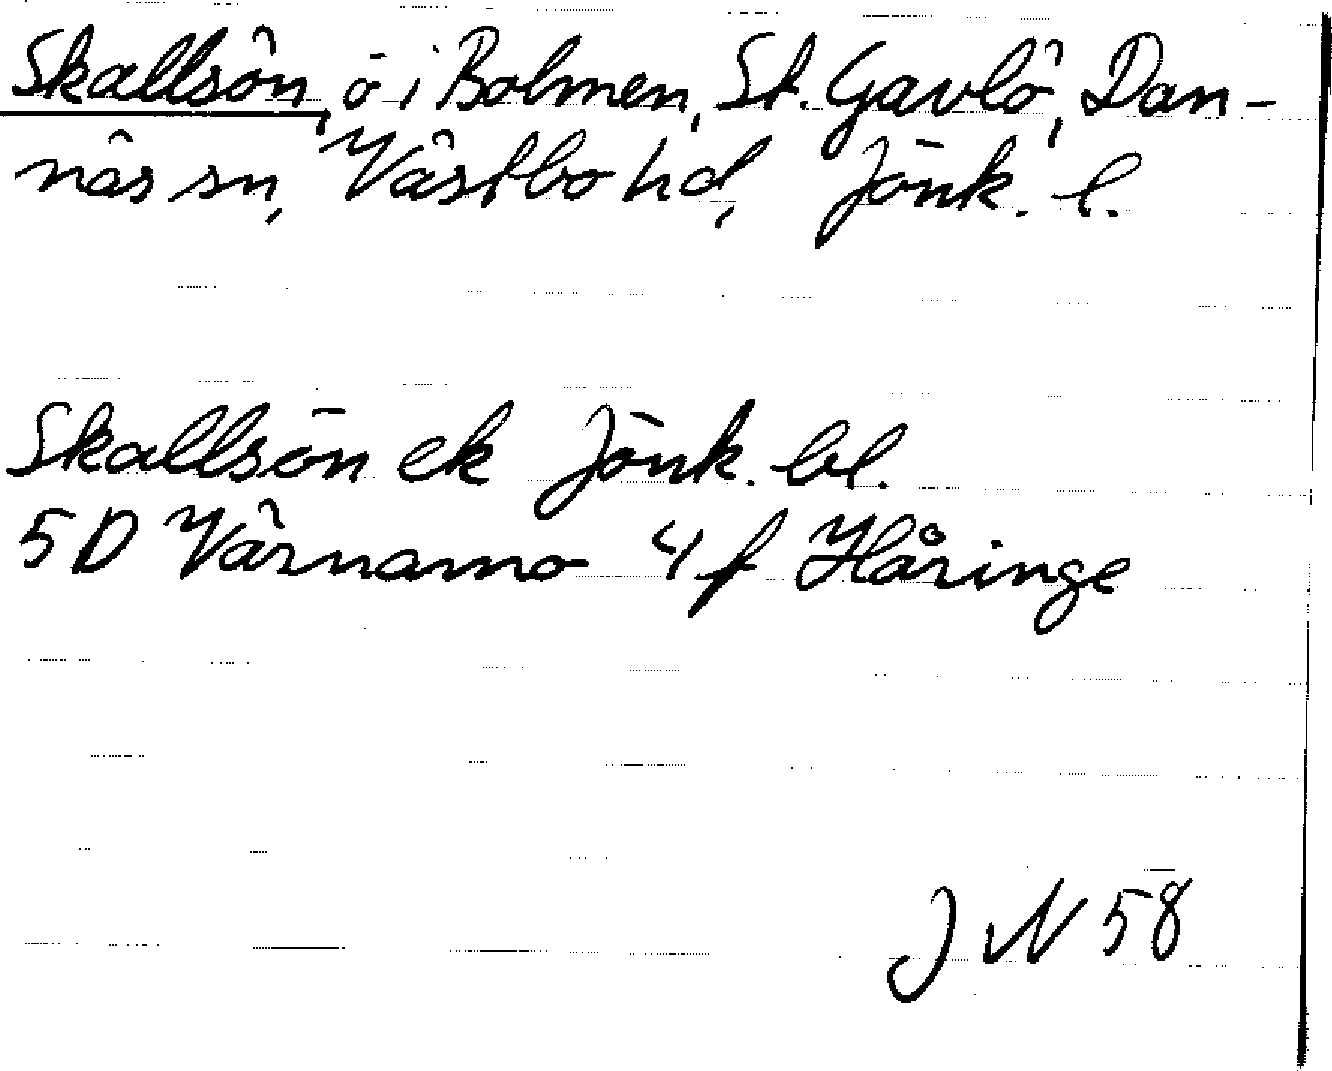 Skallsön, ö i Bolmen, St. Gavlö, Dan-
näs sn, Västbo hd, Jönk. l.
Skallsön ek Jönk. bl.
5D Värnamo 4 f Håringe
J N 58